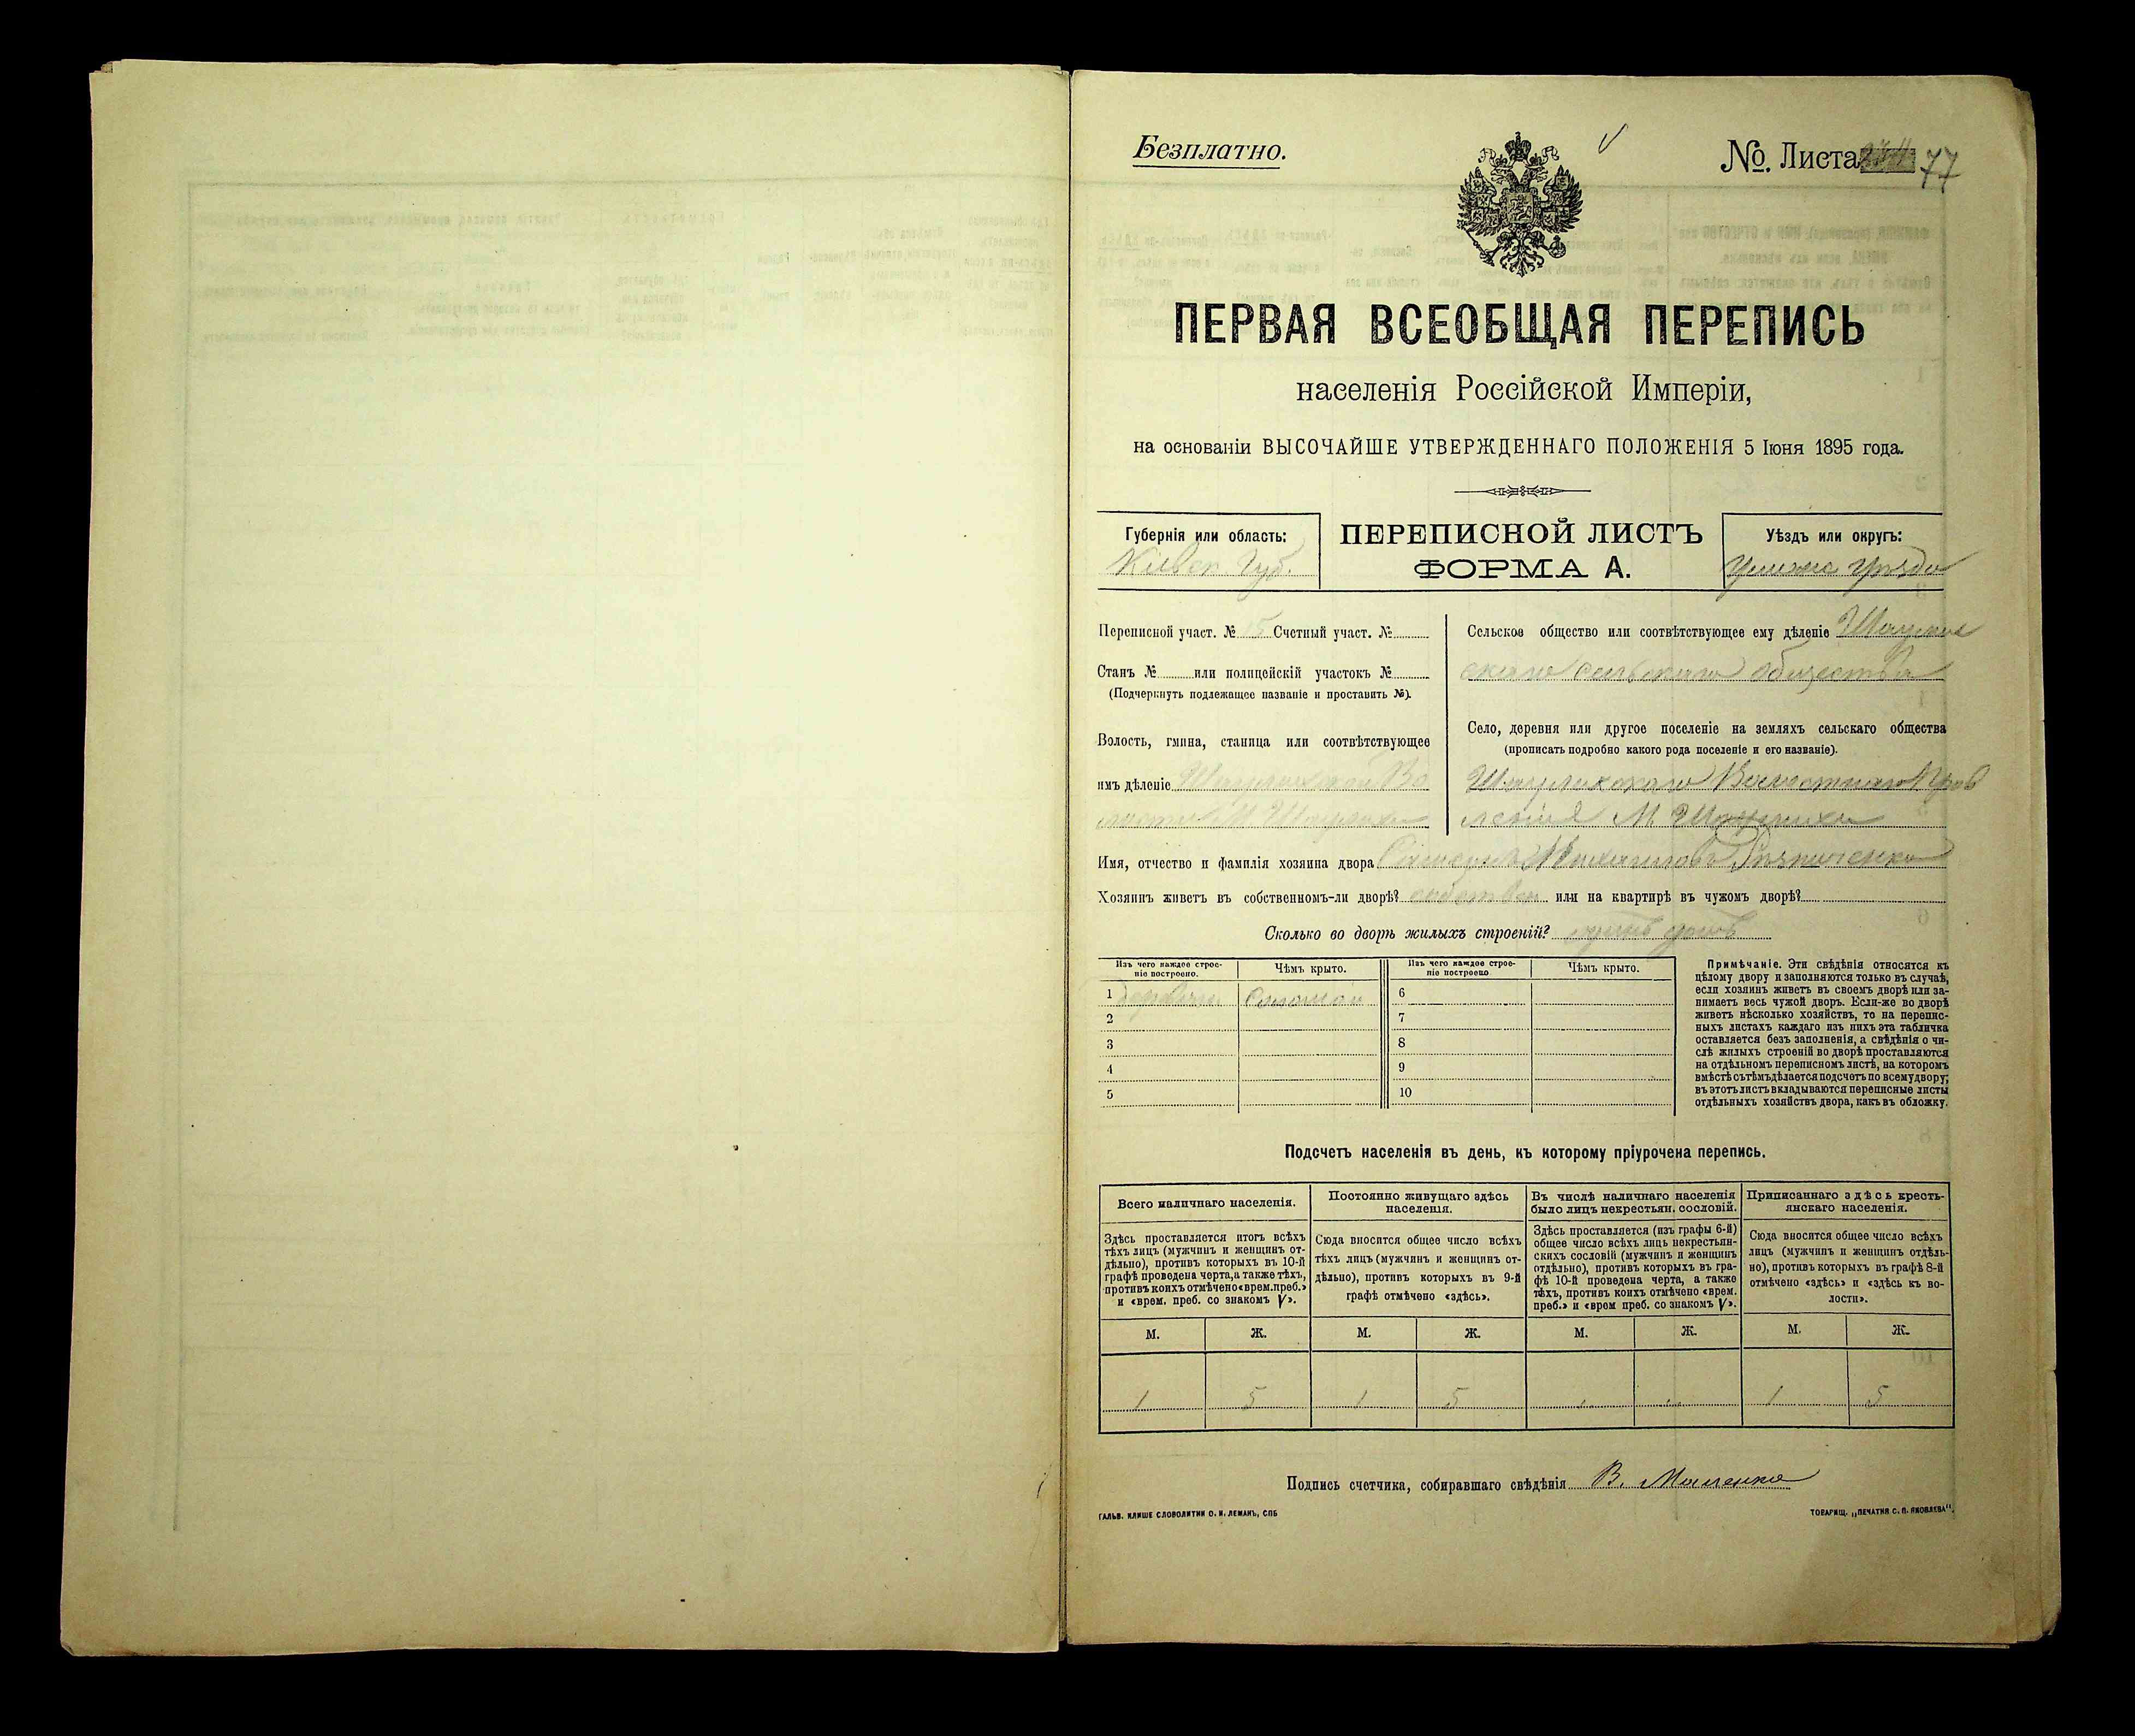 Безплатно.
№. Листа 77
ПЕРВАЯ ВСЕОБЩАЯ ПЕРЕПИСЬ
населенія Россійской Имперіи,
на основаніи ВЫСОЧАЙШЕ УТВЕРЖДЕННАГО ПОЛОЖЕНІЯ 5 Іюня 1895 года.
Губернія или область:
Кіевск. Губ.
ПЕРЕПИСНОЙ ЛИСТЪ
ФОРМА А.
Уѣздъ или округъ:
Переписной участ. № 15 Счетный участ. №
Станъ № или полицейскій участокъ №
(Подчеркнуть подлежащее названіе и проставить №).
Волость, гмина, станица или соотвѣтствующее
имъ дѣленіе
Сельское общество или соотвѣтствующее ему дѣленіе
скаго сельскаго общества
Село, деревня или другое поселеніе на земляхъ сельскаго общества
(прописать подробно какого рода поселеніе и его названіе).
Волостного Прав
ленія М.
Имя, отчество и фамилія хозяина двора
Хозяинъ живетъ въ собственномъ-ли дворѣ? или на квартирѣ въ чужомъ дворѣ?
Сколько во дворѣ жилыхъ строеній? одинъ домъ
Изъ чего каждое строе-
ніе построено.
Чѣмъ крыто.
Изъ чего каждое строе-
ніе построено
Чѣмъ крыто.
1 Соломой 6
2 7
3 8
4 9
5 10
Примѣчаніе. Эти свѣдѣнія относятся къ
цѣлому двору и заполняются только въ случаѣ,
если хозяинъ живетъ въ своемъ дворѣ или за-
нимаетъ весь чужой дворъ. Если-же во дворѣ
живетъ нѣсколько хозяйствъ, то на перепис-
ныхъ листахъ каждаго изъ нихъ эта табличка
оставляется безъ заполненія, а свѣдѣнія о чи-
слѣ жилыхъ строеній во дворѣ проставляются
на отдѣльномъ переписномъ листѣ, на которомъ
вмѣстѣ съ тѣмъ дѣлается подсчетъ по всему двору;
въ этотъ листъ вкладываются переписные листы
отдѣльныхъ хозяйствъ двора, какъ въ обложку.
Подсчетъ населенія въ день, къ которому пріурочена перепись.
Всего наличнаго населенія.
Здѣсь проставляется итогъ всѣхъ
тѣхъ лицъ (мужчинъ и женщинъ от-
дѣльно), противъ которыхъ въ 10-й
графѣ проведена черта, а также тѣхъ,
противъ коихъ отмѣчено «врем. преб.»
и «врем. преб. со знакомъ V».
Постоянно живущаго здѣсь
населенія.
Сюда вносится общее число всѣхъ
тѣхъ лицъ (мужчинъ и женщинъ от-
дѣльно), противъ которыхъ въ 9-й
графѣ отмѣчено «здѣсь».
Въ числѣ наличнаго населенія
было лицъ некрестьян. сословій.
Здѣсь проставляется (изъ графы 6-й)
общее число всѣхъ лицъ некрестьян-
скихъ сословій (мужчинъ и женщинъ
отдѣльно), противъ которыхъ въ гра-
фѣ 10-й проведена черта, а также
тѣхъ, противъ коихъ отмѣчено «врем.
преб.» и «врем преб. со знакомъ V».
Приписаннаго здѣсь кресть-
янскаго населенія.
Сюда вносится общее число всѣхъ
лицъ (мужчинъ и женщинъ отдѣль-
но), противъ которыхъ въ графѣ 8-й
отмѣчено «здѣсь» и «здѣсь къ во-
лости».
М. Ж. М. Ж. М. Ж. М. Ж.
1 5 1 5 1 5
Подпись счетчика, собиравшаго свѣдѣнія В.
ГАЛЬВ. КЛИШЕ СЛОВОЛИТНИ О. И. ЛЕМАНЪ, СПБ
ТОВАРИЩ. „ПЕЧАТНЯ С. П. ЯКОВЛЕВА".